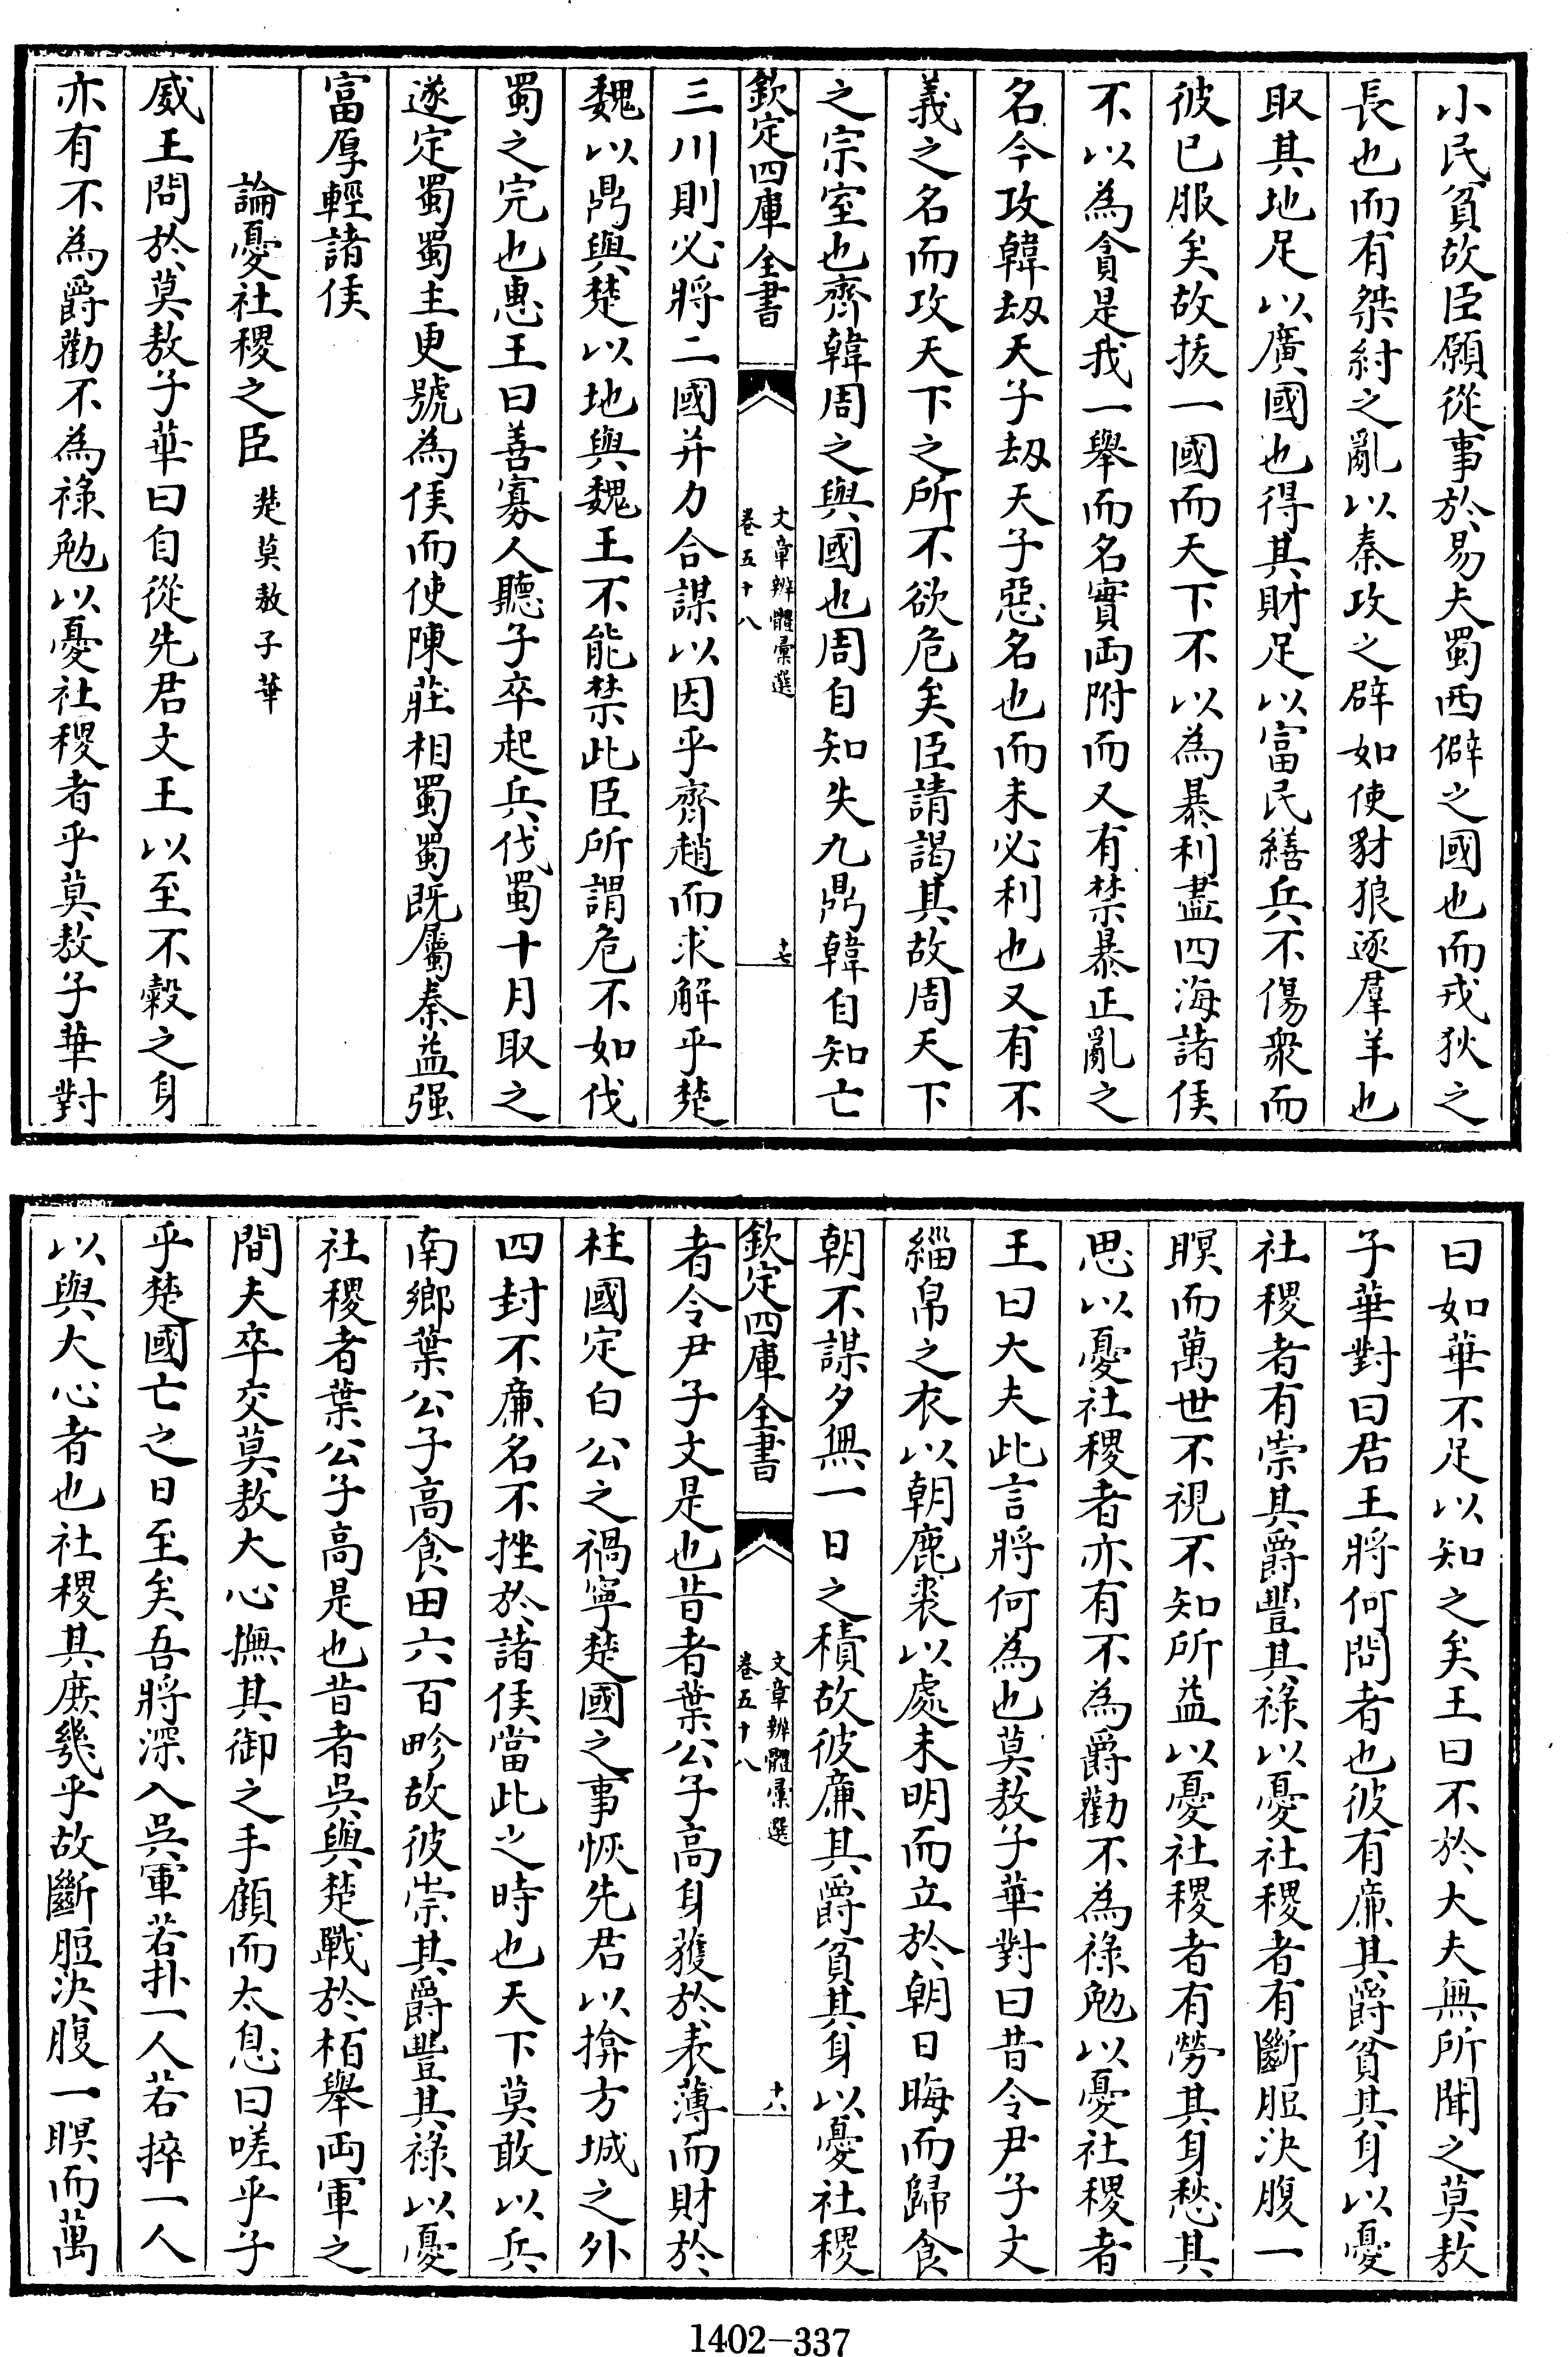 小民貧故臣願從事於易夫蜀西僻之國也而戎狄之
長也而有桀紂之亂以秦攻之辟如使豺狼逐羣羊也
取其地足以廣國也得其財足以富民繕兵不傷衆而
彼已服矣故拔一國而天下不以為暴利盡四海諸侯
不以為貪是我一舉而名實両附而又有禁暴正亂之
名今攻韓刼天子刼天子惡名也而未必利也又有不
義之名而攻天下之所不欲危矣臣請謁其故周天下
之宗室也齊韓周之與國也周自知失九鼎韓自知亡
欽定四庫全書
文章辨體彙選
卷五十八
十七
三川則必將二國并力合謀以因乎齊趙而求解乎楚
魏以鼎與楚以地與魏王不能禁此臣所謂危不如伐
蜀之完也惠王曰善寡人聽子卒起兵伐蜀十月取之
遂定蜀蜀主更號為侯而使陳莊相蜀蜀既屬秦益强
富厚輕諸侯
論憂社稷之臣 楚莫敖子華
威王問於莫敖子華曰自從先君文王以至不穀之身
亦有不為爵勸不為祿勉以憂社稷者乎莫敖子華對
曰如華不足以知之矣王曰不於大夫無所聞之莫敖
子華對曰君王將何問者也彼有廉其爵貧其身以憂
社稷者有崇其爵豐其祿以憂社稷者有斷脰決腹一
瞑而萬世不視不知所益以憂社稷者有勞其身愁其
思以憂社稷者亦有不為爵勸不為祿勉以憂社稷者
王曰大夫此言將何為也莫敖子華對曰昔令尹子文
緇帛之衣以朝鹿裘以處未明而立於朝日晦而歸食
朝不謀夕無一日之積故彼廉其爵貧其身以憂社稷
欽定四庫全書
文章辨體彙選
卷五十八
十八
者令尹子文是也昔者葉公子高身獲於表薄而財於
柱國定白公之禍寧楚國之事恢先君以揜方城之外
四封不廉名不挫於諸侯當此之時也天下莫敢以兵
南鄉葉公子高食田六百畛故彼崇其爵豐其祿以憂
社稷者葉公子高是也昔者吳與楚戰於栢舉両軍之
間夫卒交莫敖大心撫其御之手顧而太息曰嗟乎子
乎楚國亡之日至矣吾將深入吳軍若扑一人若捽一人
以與大心者也社稷其庶幾乎故斷脰決腹一瞑而萬
1402-337